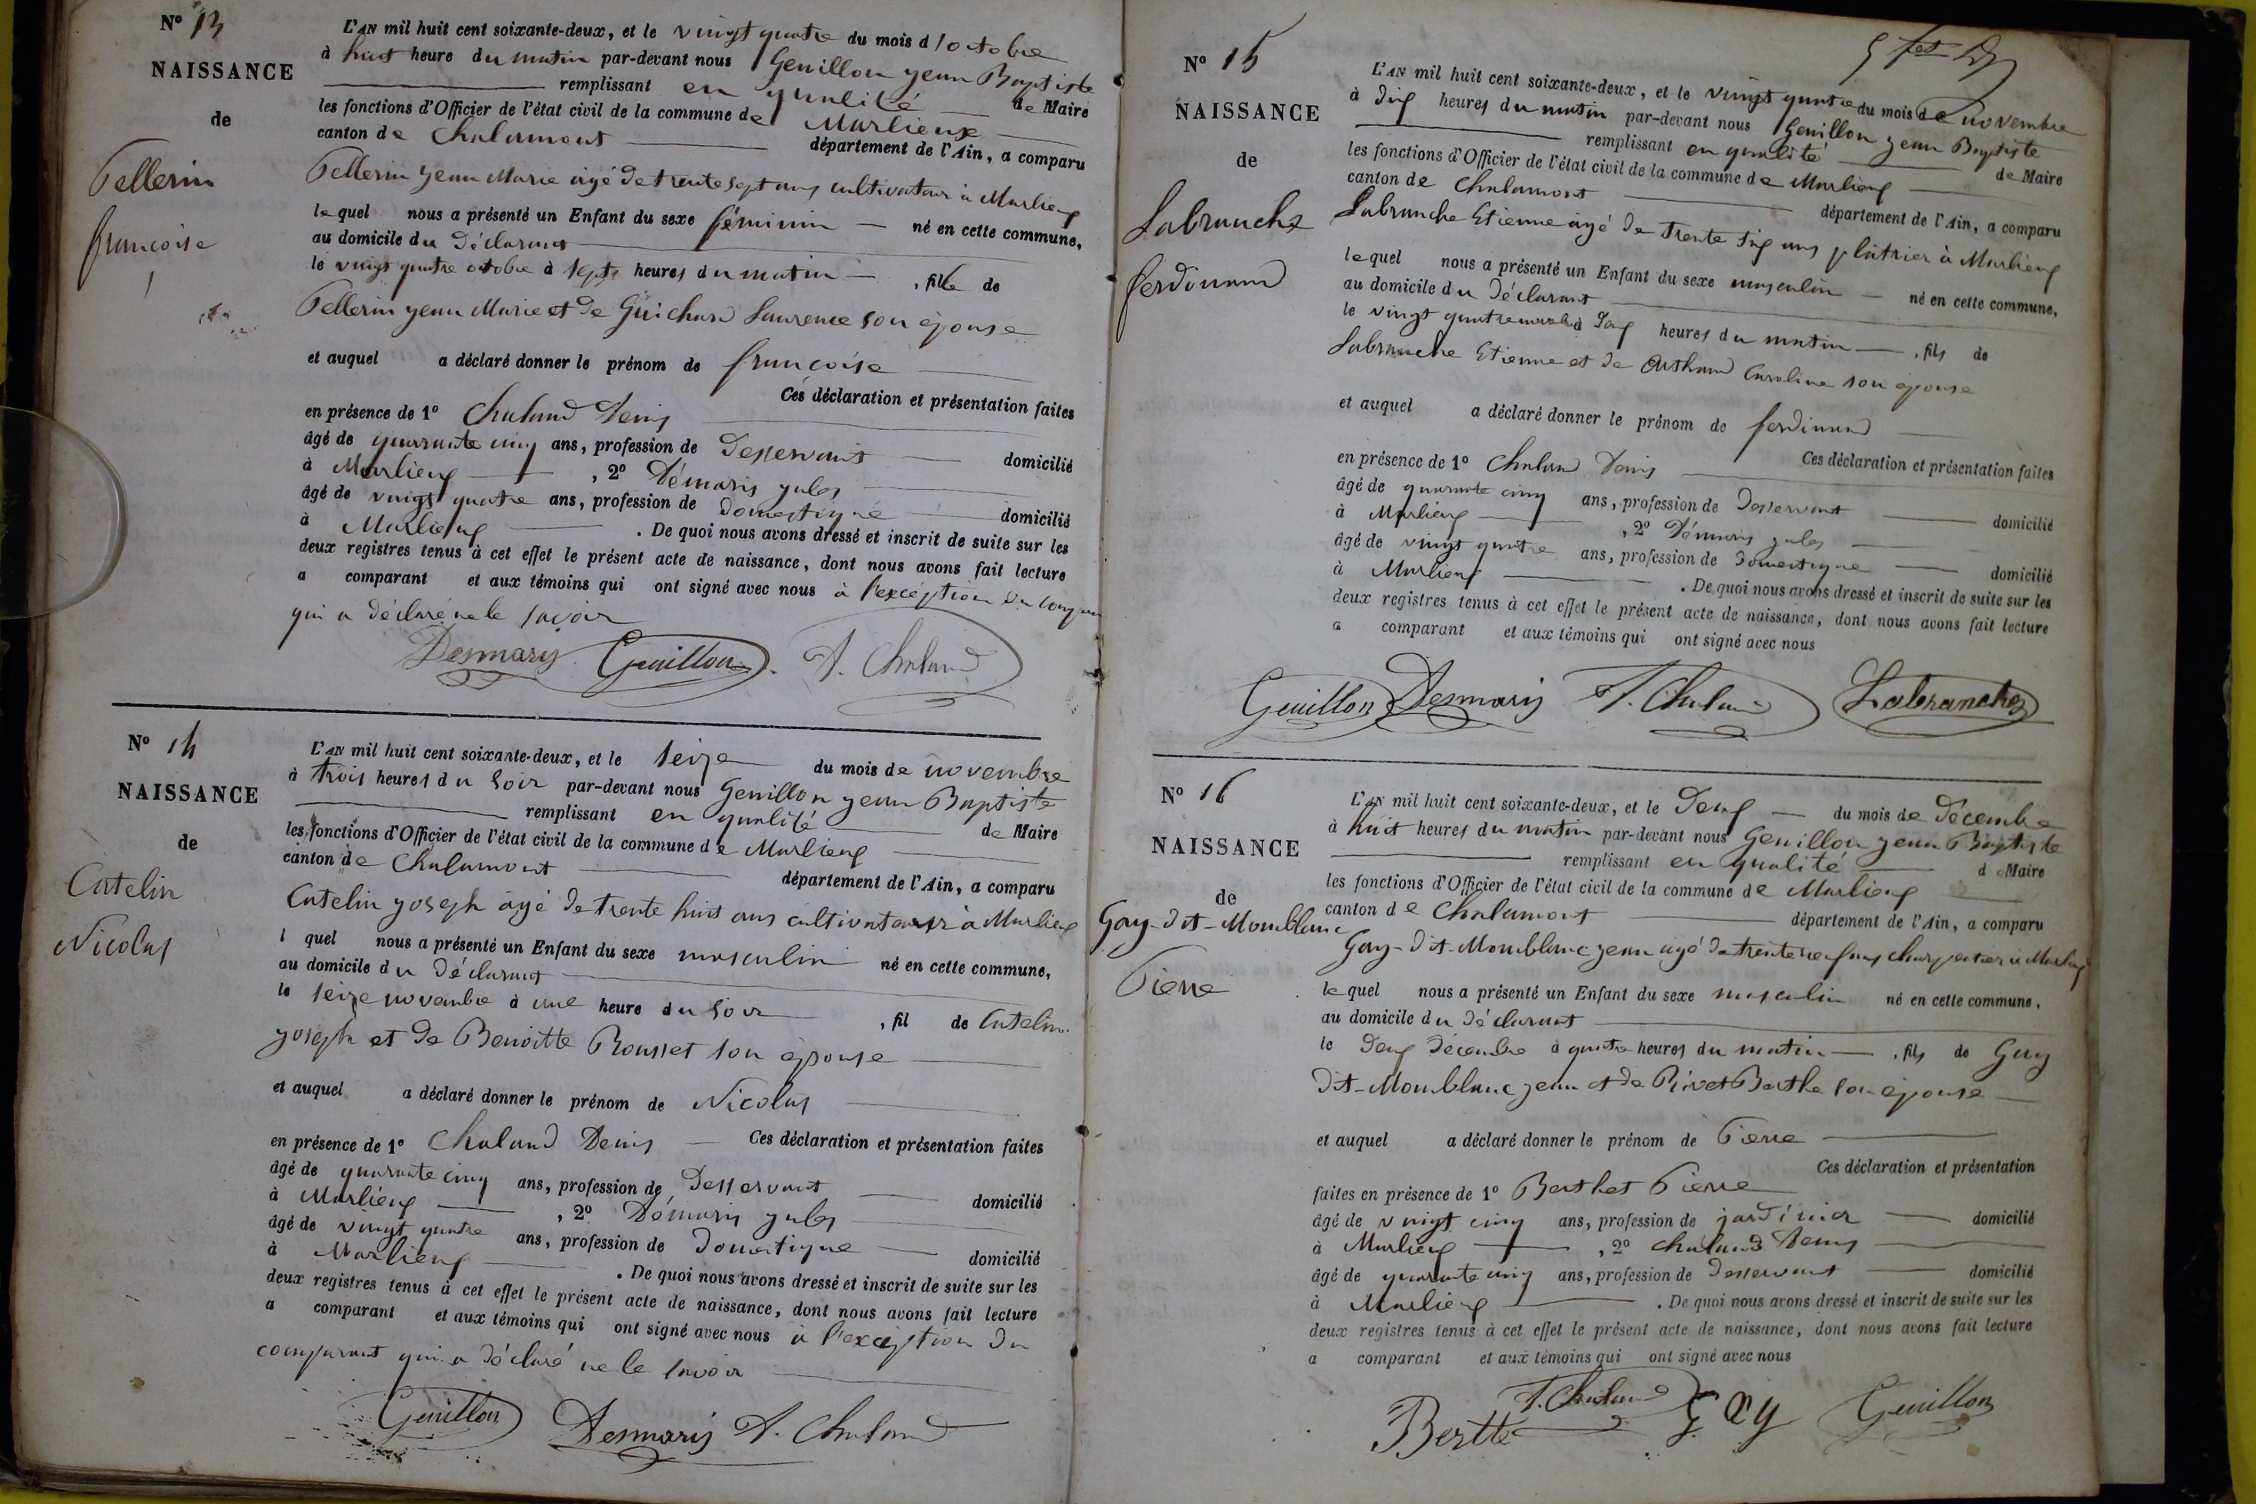 N° 13
NAISSANCE
de
Pellerin
françoise
L'AN mil huit cent soixante-deux, et le vingt quatre du mois d'octobre
à huit heure du matin par-devant nous Genillon jean Baptiste
remplissant en qualité de Maire
les fonctions d'Officier de l'état civil de la commune de Marlieux
canton de Chalamont département de l'Ain, a comparu
Pellerin jean Marie âgé de trente sept ans cultivateur à Marlieux
lequel nous a présenté un Enfant du sexe féminin né en cette commune,
au domicile du déclarant
le vingt quatre octobre à sept heures du matin , fille de
Pellerin jean Marie et de Guichard Laurence son épouse
et auquel a déclaré donner le prénom de françoise
Ces déclaration et présentation faites
en présence de 1° Chaland Denis
âgé de quarante cinq ans, profession de Desservant domicilié
à Marlieux , 2° Démaris jules
âgé de vingt quatre ans, profession de domestique domicilié
à Marlieux . De quoi nous avons dressé et inscrit de suite sur les
deux registres tenus à cet effet le présent acte de naissance, dont nous avons fait lecture
a comparant et aux témoins qui ont signé avec nous à l'exception du
qui a déclaré ne le savoir
Desmaris Genillon D. Chaland
N° 14
NAISSANCE
de
Catelin
Nicolas
L'AN mil huit cent soixante-deux, et le seize du mois de novembre
à trois heures du soir par-devant nous Genillon jean Baptiste
remplissant en qualité de Maire
les fonctions d'Officier de l'état civil de la commune de Marlieux
canton de Chalamont département de l'Ain, a comparu
Catelin joseph âgé de trente huit ans cultivateur à Marlieux
l quel nous a présenté un Enfant du sexe masculin né en cette commune,
au domicile du déclarant
le seize novembre à une heure du soir , fil de Catelin
joseph et de Benoitte Rousset son épouse
et auquel a déclaré donner le prénom de Nicolas
en présence de 1° Chaland Denis Ces déclaration et présentation faites
âgé de quarante cinq ans, profession de Desservant domicilié
à Marlieux , 2° Démaris jules
âgé de vingt quatre ans, profession de domestique domicilié
à Marlieux . De quoi nous avons dressé et inscrit de suite sur les
deux registres tenus à cet effet le présent acte de naissance, dont nous avons fait lecture
a comparant et aux témoins qui ont signé avec nous à l'exception du
comparant qui a déclaré ne le savoir
Genillon Desmaris D. Chaland
N° 15
NAISSANCE
de
Labranche
ferdinand
L'AN mil huit cent soixante-deux, et le vingt quatre du mois de novembre
à dix heures du matin par-devant nous Genillon jean Baptiste
remplissant en qualité de Maire
les fonctions d'Officier de l'état civil de la commune de Marlieux
canton de Chalamont département de l'Ain, a comparu
Labranche Etienne âgé de trente six ans plâtrier à Marlieux
lequel nous a présenté un Enfant du sexe masculin né en cette commune,
au domicile du déclarant
le vingt quatre à deux heures du matin , fils de
Labranche Etienne et de Caroline son épouse
et auquel a déclaré donner le prénom de ferdinand
Ces déclaration et présentation faites
en présence de 1° Chaland Denis
âgé de quarante cinq ans, profession de Desservant domicilié
à Marlieux , 2° Démaris jules
âgé de vingt quatre ans, profession de domestique domicilié
à Marlieux . De quoi nous avons dressé et inscrit de suite sur les
deux registres tenus à cet effet le présent acte de naissance, dont nous avons fait lecture
a comparant et aux témoins qui ont signé avec nous
Genillon Desmaris D. Chaland Labranche
N° 16
NAISSANCE
de
Gay-dit-Momblanc
Pierre
L'AN mil huit cent soixante-deux, et le deux du mois de décembre
à huit heures du matin par-devant nous Genillon jean Baptiste
remplissant en qualité de Maire
les fonctions d'Officier de l'état civil de la commune de Marlieux
canton de Chalamont département de l'Ain, a comparu
Gay-dit-Momblanc jean âgé de trente neuf ans charpentier à Marlieux
lequel nous a présenté un Enfant du sexe masculin né en cette commune,
au domicile du déclarant
le deux décembre à quatre heures du matin , fils de Gay
dit-Momblanc jean et de Rivet Berthe son épouse
et auquel a déclaré donner le prénom de Pierre
Ces déclaration et présentation
faites en présence de 1° Berthet Pierre
âgé de vingt cinq ans, profession de jardinier domicilié
à Marlieux , 2° Chaland Denis
âgé de quarante cinq ans, profession de Desservant domicilié
à Marlieux . De quoi nous avons dressé et inscrit de suite sur les
deux registres tenus à cet effet le présent acte de naissance, dont nous avons fait lecture
a comparant et aux témoins qui ont signé avec nous
D. Chaland Gay Genillon